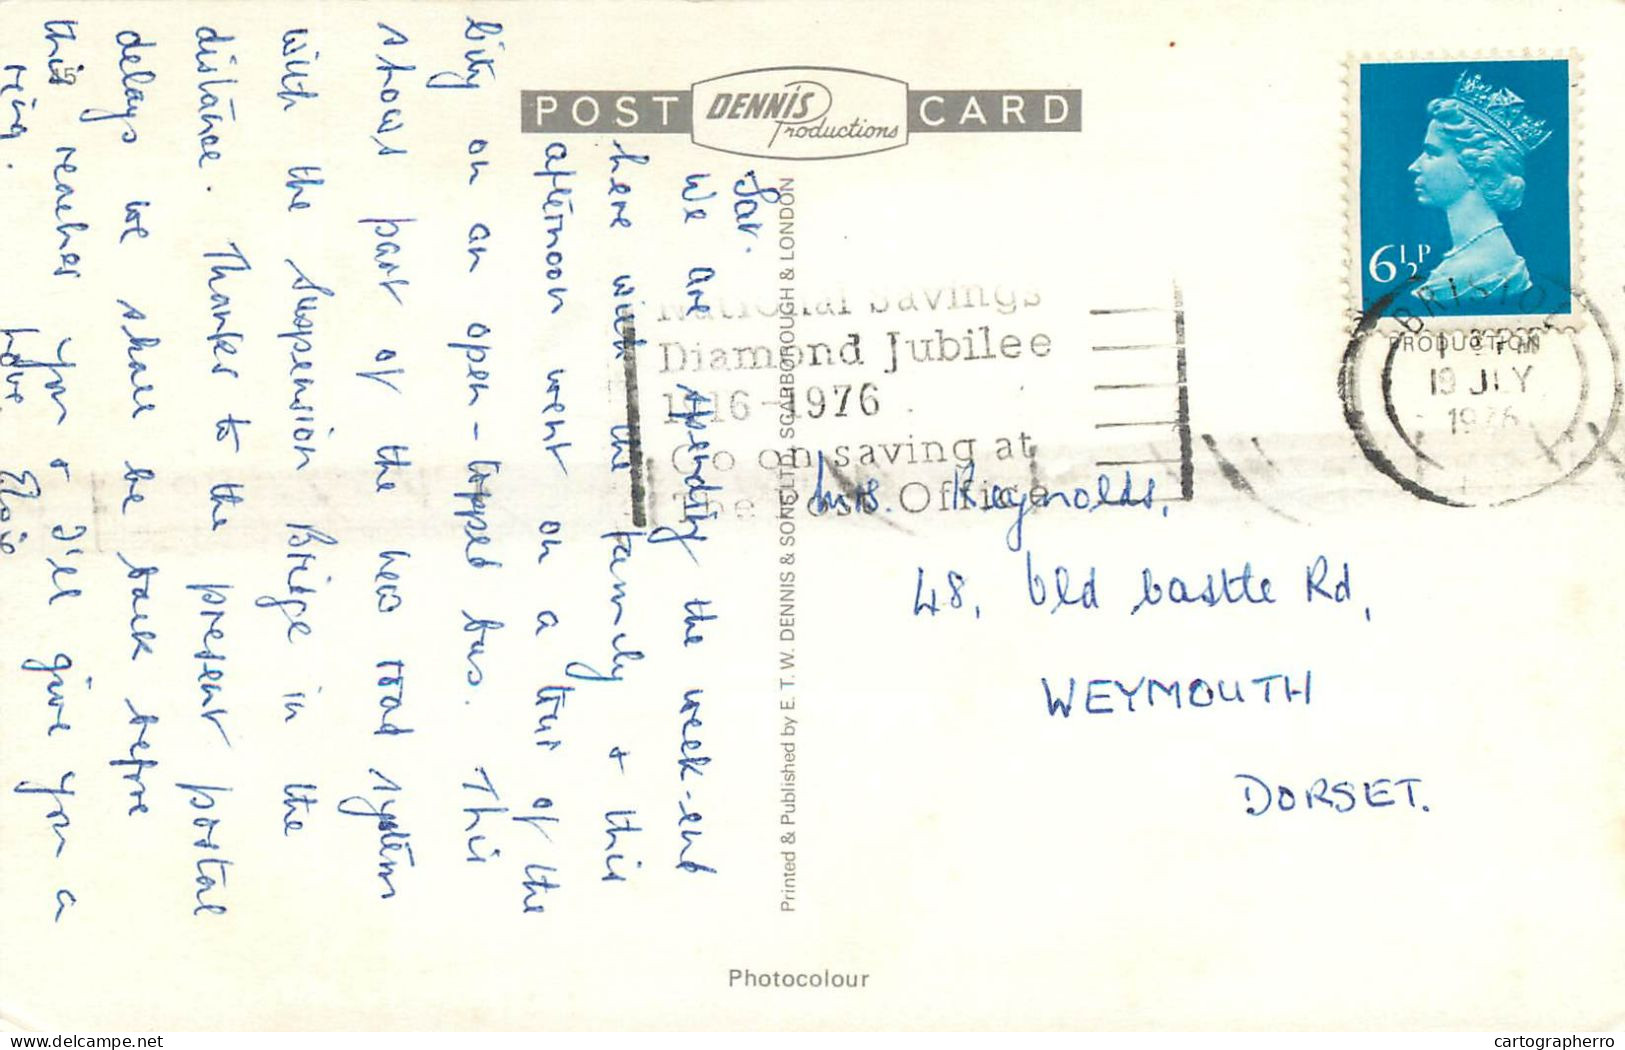 POST DENNIS Productions CARD
Sat.
We are spending the week-end
here with the family & this
afternoon went on a tour of the
City on an open-topped bus. This
shows part of the new road system
with the Suspension Bridge in the
distance. Thanks to the present postal
delays we shall be back before
this reaches you & I'll give you a
ring. Love, Elsie
Printed & Published by E. T. W. DENNIS & SONS LTD. SCARBOROUGH & LONDON
National Savings
Diamond Jubilee
1916-1976
Go on saving at
The Post Office
6½P
BRISTOL
PM
19 JLY
1976
PRODUCTION
Mrs. Reynolds,
48, Old Castle Rd,
WEYMOUTH
DORSET.
Photocolour
delcampe.net
cartographerro